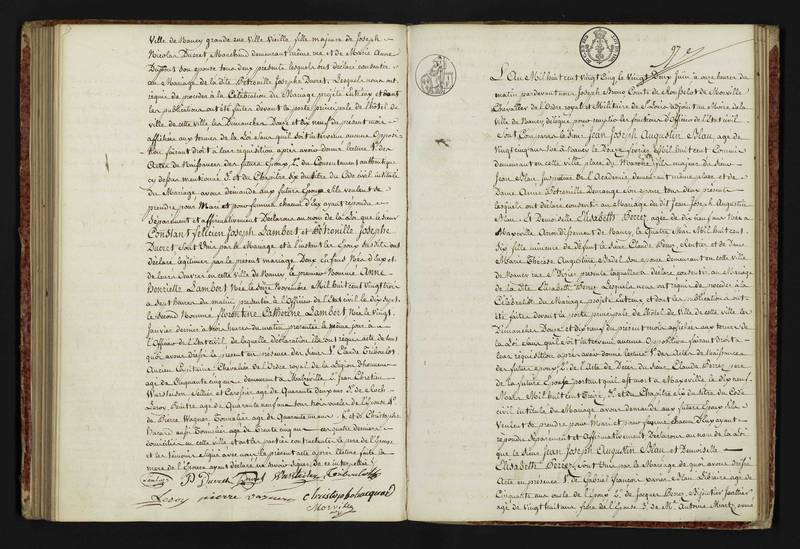 Ville de Nancy grande rue Ville Vieille fille majeure de Joseph
Nicolas Ducret, Marchand demeurant même rue et de Marie Anne
Dupont son epouse tous deux presents lesquels ont déclaré consentir
au Mariage de la dite Petronille Josephe Ducret, Lesquels nous ont
requis de procéder à la Célébration du Mariage projeté entr'eux et dont
les publications ont été faites devant la porte principale de l'hôtel de
ville de cette ville, les Dimanches Douze et dix neuf du présent mois
affichées aux termes de la Loi sans qu'il soit intervenu aucune Opposi-
tion faisant droit à leur réquisition après avoir donné lecture 1.° des
Actes de Naissances des futurs Epoux, 2.° du Consentement authentique
ci-dessus mentionné 3.° et du Chapitre six du titre du Code civil intitulé
du Mariage, avons demandé aux futurs Epoux s'ils veulent se
prendre pour Mari et pour femme chacun d'eux ayant répondu
séparément et affirmativement Déclarons au nom de la Loi que le sieur
Constant Joseph Lambert et Pétronille Josephe
Ducret sont Unis par le Mariage et à l'instant les Epoux susdits ont
déclaré légitimer par le présent mariage Deux Enfans Nés d'eux et
de leurs Œuvres en cette ville de Nancy le premier Nommé Anne
Henriette Lambert Née le seize Novembre Mil huit cent Vingt trois
à sept heures du matin présentée à l'Officier de l'Etat civil le dix sept,
le second Nommé florentine Catherine Lambert Née le Vingt
Janvier dernier à trois heures du matin présentée le même jour à
l'Officier de l'Etat civil, de laquelle déclaration ils ont requis acte, de tout
quoi avons dressé le présent en présence des Sieurs 1.°
Ancien Capitaine Chevalier de l'Ordre royal de la Légion d'honneur
agé de Cinquante cinq demeurant à Malzéville 2.° Jean Chrétien
Wursteisen Sellier et Carossier agé de Quarante deux ans 3.°
Leroy, Peintre agé de Quarante neuf ans tous trois
de Pierre Wagner Tonnelier agé de Quarante
aussi Tonnelier agé de Trente cinq ans
domiciliés en cette ville et ont les parties contractantes le père de l'Epouse
et les témoins signé avec nous, le présent acte après lecture faite la
mère de l'Epouse ayant déclaré ne savoir signer de ce interpellée
Lambert P Ducret Ducret Wursteisen
Leroy pierre
Morville
97e
L'An Mil huit cent Vingt cinq le Vingt Deux Juin à onze heures du
matin par devant nous Joseph Bruno Comte de Morville
Chevalier de l'Ordre royal et Militaire de St Louis adjoint au Maire de la
Ville de Nancy délégué pour remplir les fonctions d'Officier de l'Etat civil
Sont Comparus le Sieur Jean Joseph Augustin Blau, agé de
Vingt cinq ans Né à Nancy le Douze février Mil huit cent Commis
demeurant en cette ville, place du Marché fils majeur du Sieur
Jean Blau, Inspecteur de l'Académie, demeurant même place, et de
Dame Anne Pétronille Demange son epouse tous deux présents
lesquels ont déclaré consentir au Mariage du dit Jean Joseph Augustin
Blau Et Demoiselle Elisabeth Berez, agée de dix neuf ans Née à
Maxeville Arrondissement de Nancy, le Quatre Mai Mil huit cent
six fille mineure de défunt le Sieur Claude Berez, Rentier et de Dame
Marie Thérèse Augustine, sa Veuve, demeurant en cette ville
de Nancy rue présente laquelle a déclaré consentir au Mariage
de la dite Elisabeth Berez Lesquels nous ont requis de procéder à la
Célébration du Mariage projeté entr'eux et dont les publications ont
été faites devant la porte principale de l'Hôtel de Ville de cette ville les
Dimanches Douze et dix neuf du présent mois affichées aux termes de
la Loi sans qu'il soit intervenu aucune Opposition faisant droit à
leur réquisition après avoir donné lecture 1.° des Actes de Naissances
des futurs Epoux, 2.° de l'Acte de Décès du Sieur Claude Berez père
de la future Epouse portant qu'il est mort à Maxeville le dix neuf
Mars Mil huit cent Treize 3.° et du Chapitre six du titre du Code
civil intitulé du Mariage avons demandé aux futurs Epoux s'ils
veulent se prendre pour Mari et pour femme chacun d'eux ayant
répondu séparément et Affirmativement Déclarons au nom de la Loi
que le Sieur Jean Joseph Augustin Blau et Demoiselle
Elisabeth Berez sont Unis par le Mariage de quoi avons dressé
Acte en présence 1.° de Gabriel François Blau Libraire agé de
Cinquante ans oncle de l'Epoux 2.° de Jacques Berez, Bijoutier
agé de Vingt huit ans frère de l'Epouse 3.° de M. Antoine